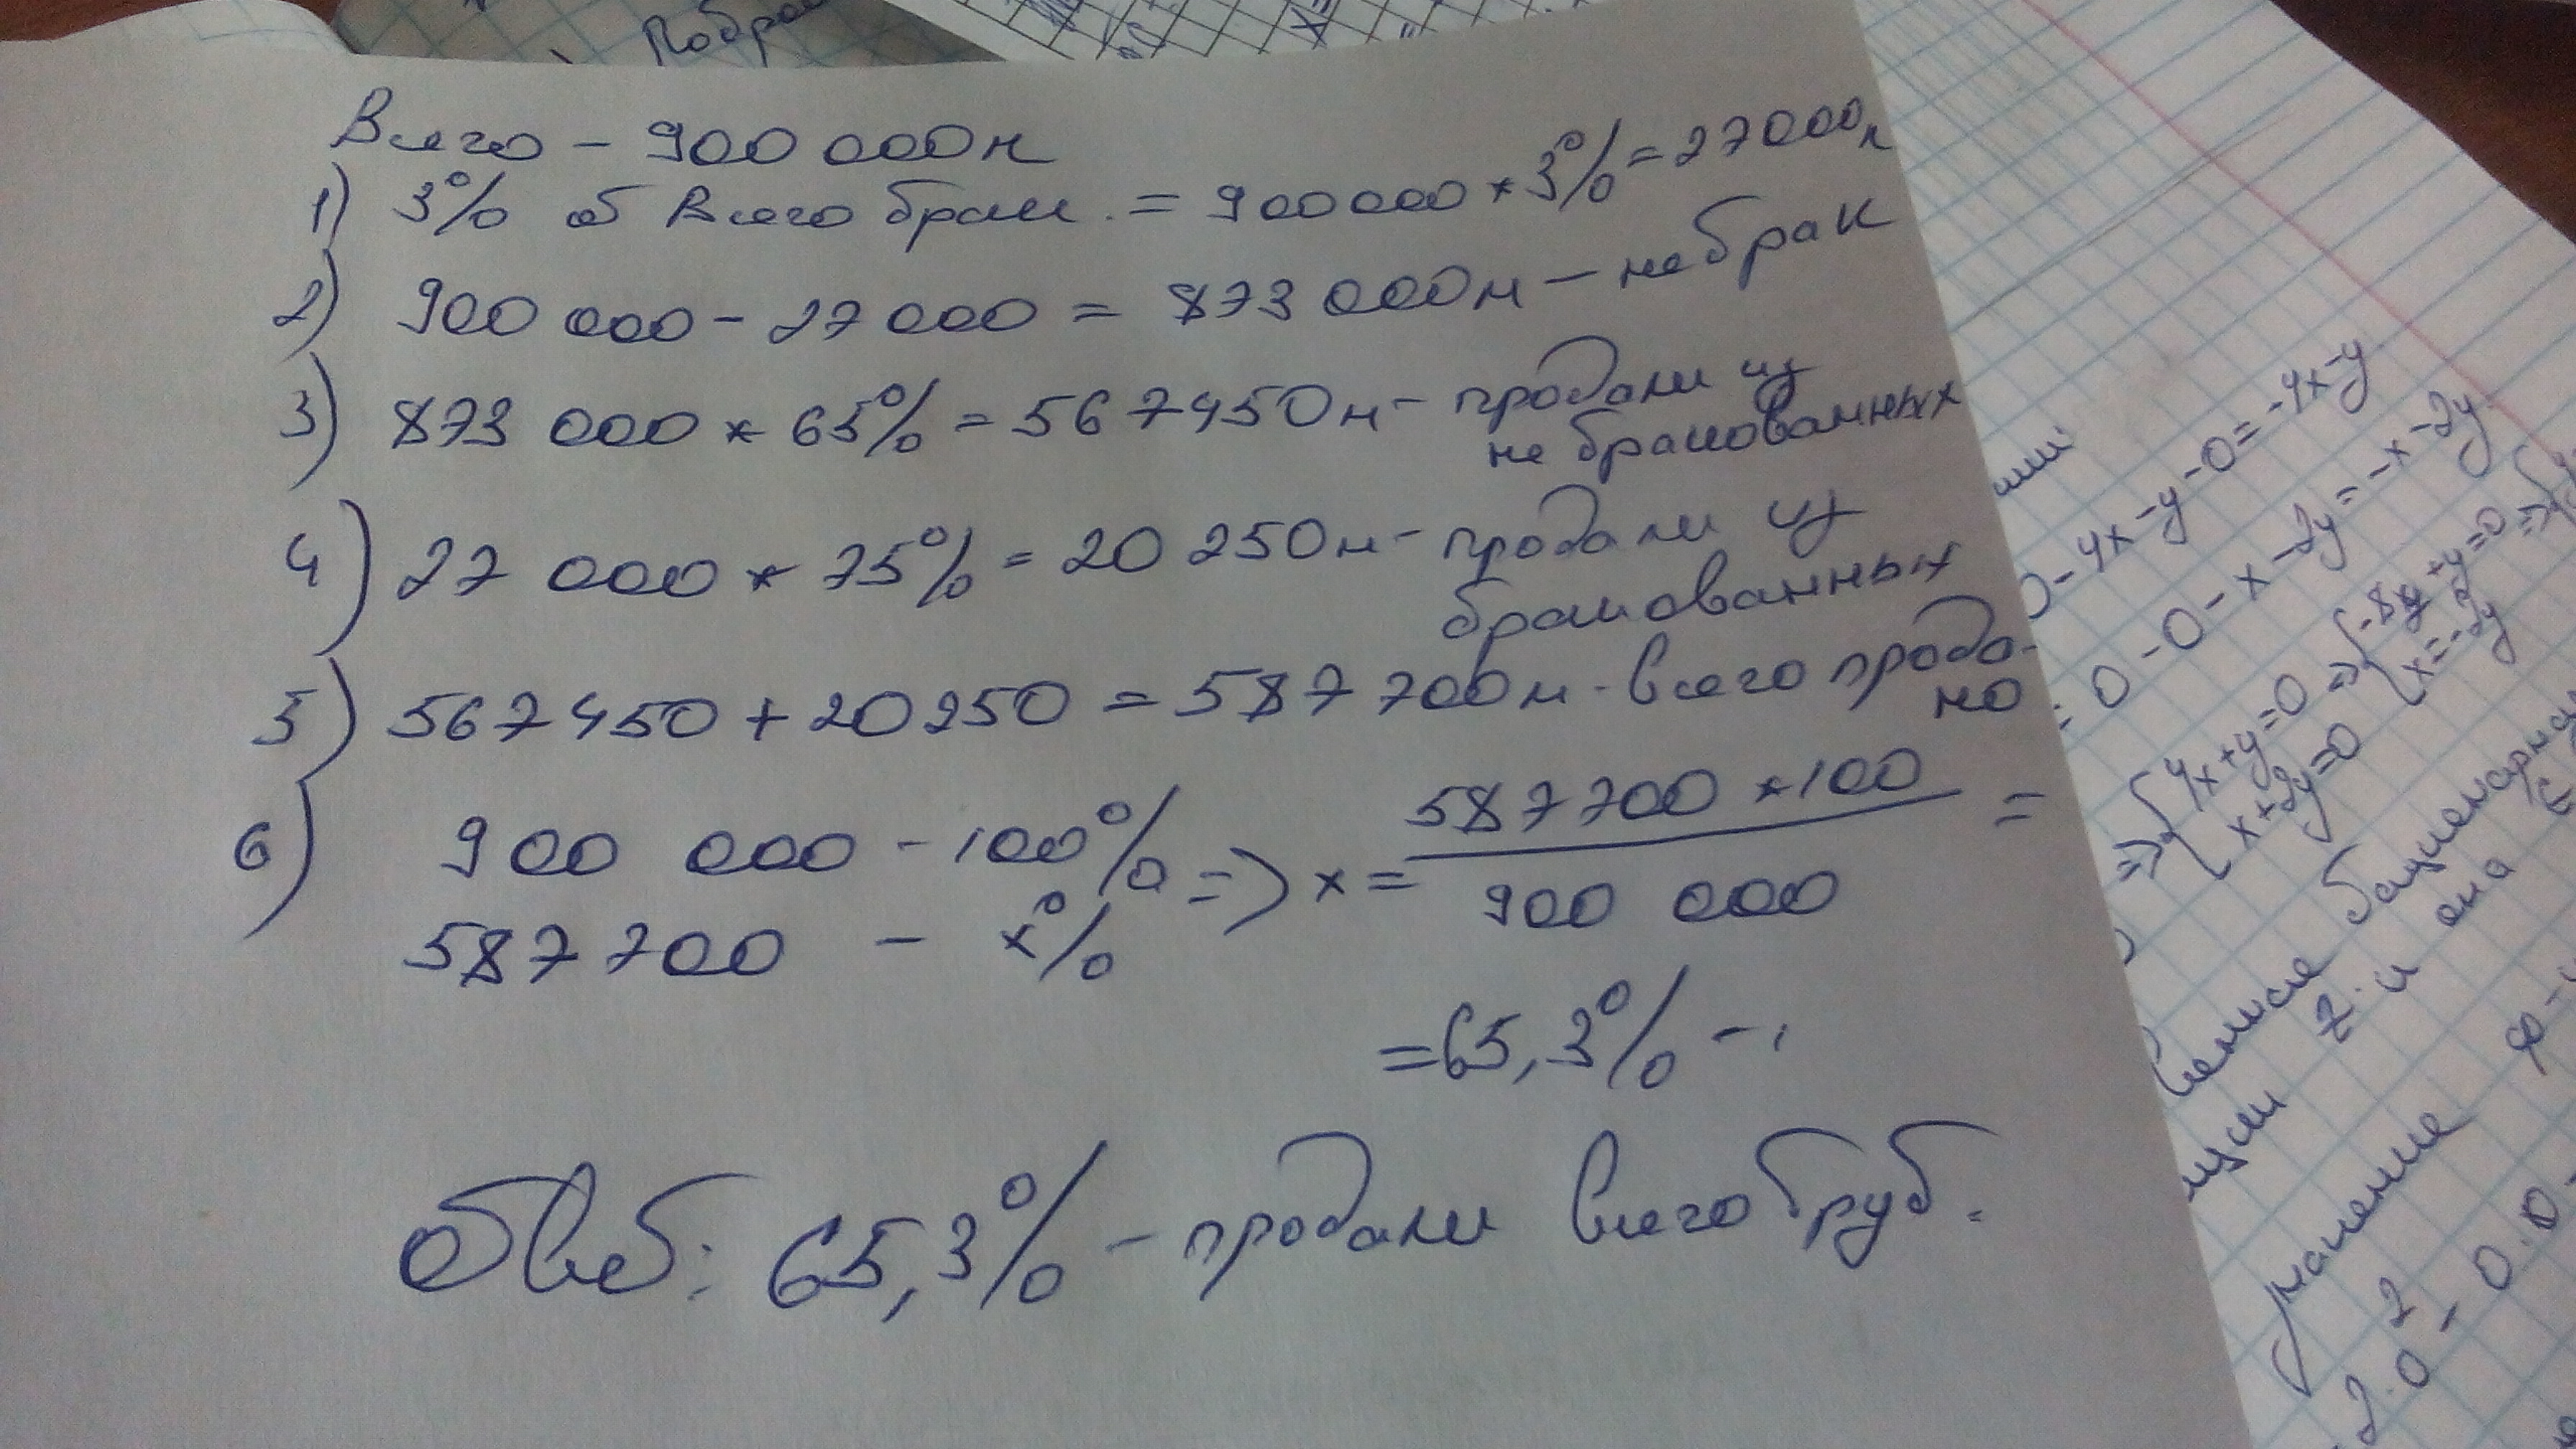 Побрал
Всего - 900 000 м
1) 3% от всего брак. = 900000 * 3% = 27000 м
2) 900 000 - 27 000 = 873 000 м - не брак
3) 873 000 * 65% = 567450 м - продали из
не бракованных
4) 27 000 * 75% = 20 250 м - продали из
бракованных
5) 567450 + 20250 = 587 700 м - всего прода-
но
6) 900 000 - 100%
587700 - x%
=> x = 587 700 * 100 / 900 000 =
= 65,3% -
Ответ: 65,3% - продали всего труб.
0 - 4x - y - 0 = -4x - y
= 0 - 0 - x - 2y = -x - 2y
=> { 4x + y = 0 => { -8y + y = 0 =>
x + 2y = 0 x = -2y
z. и она
2.0 - 0.0